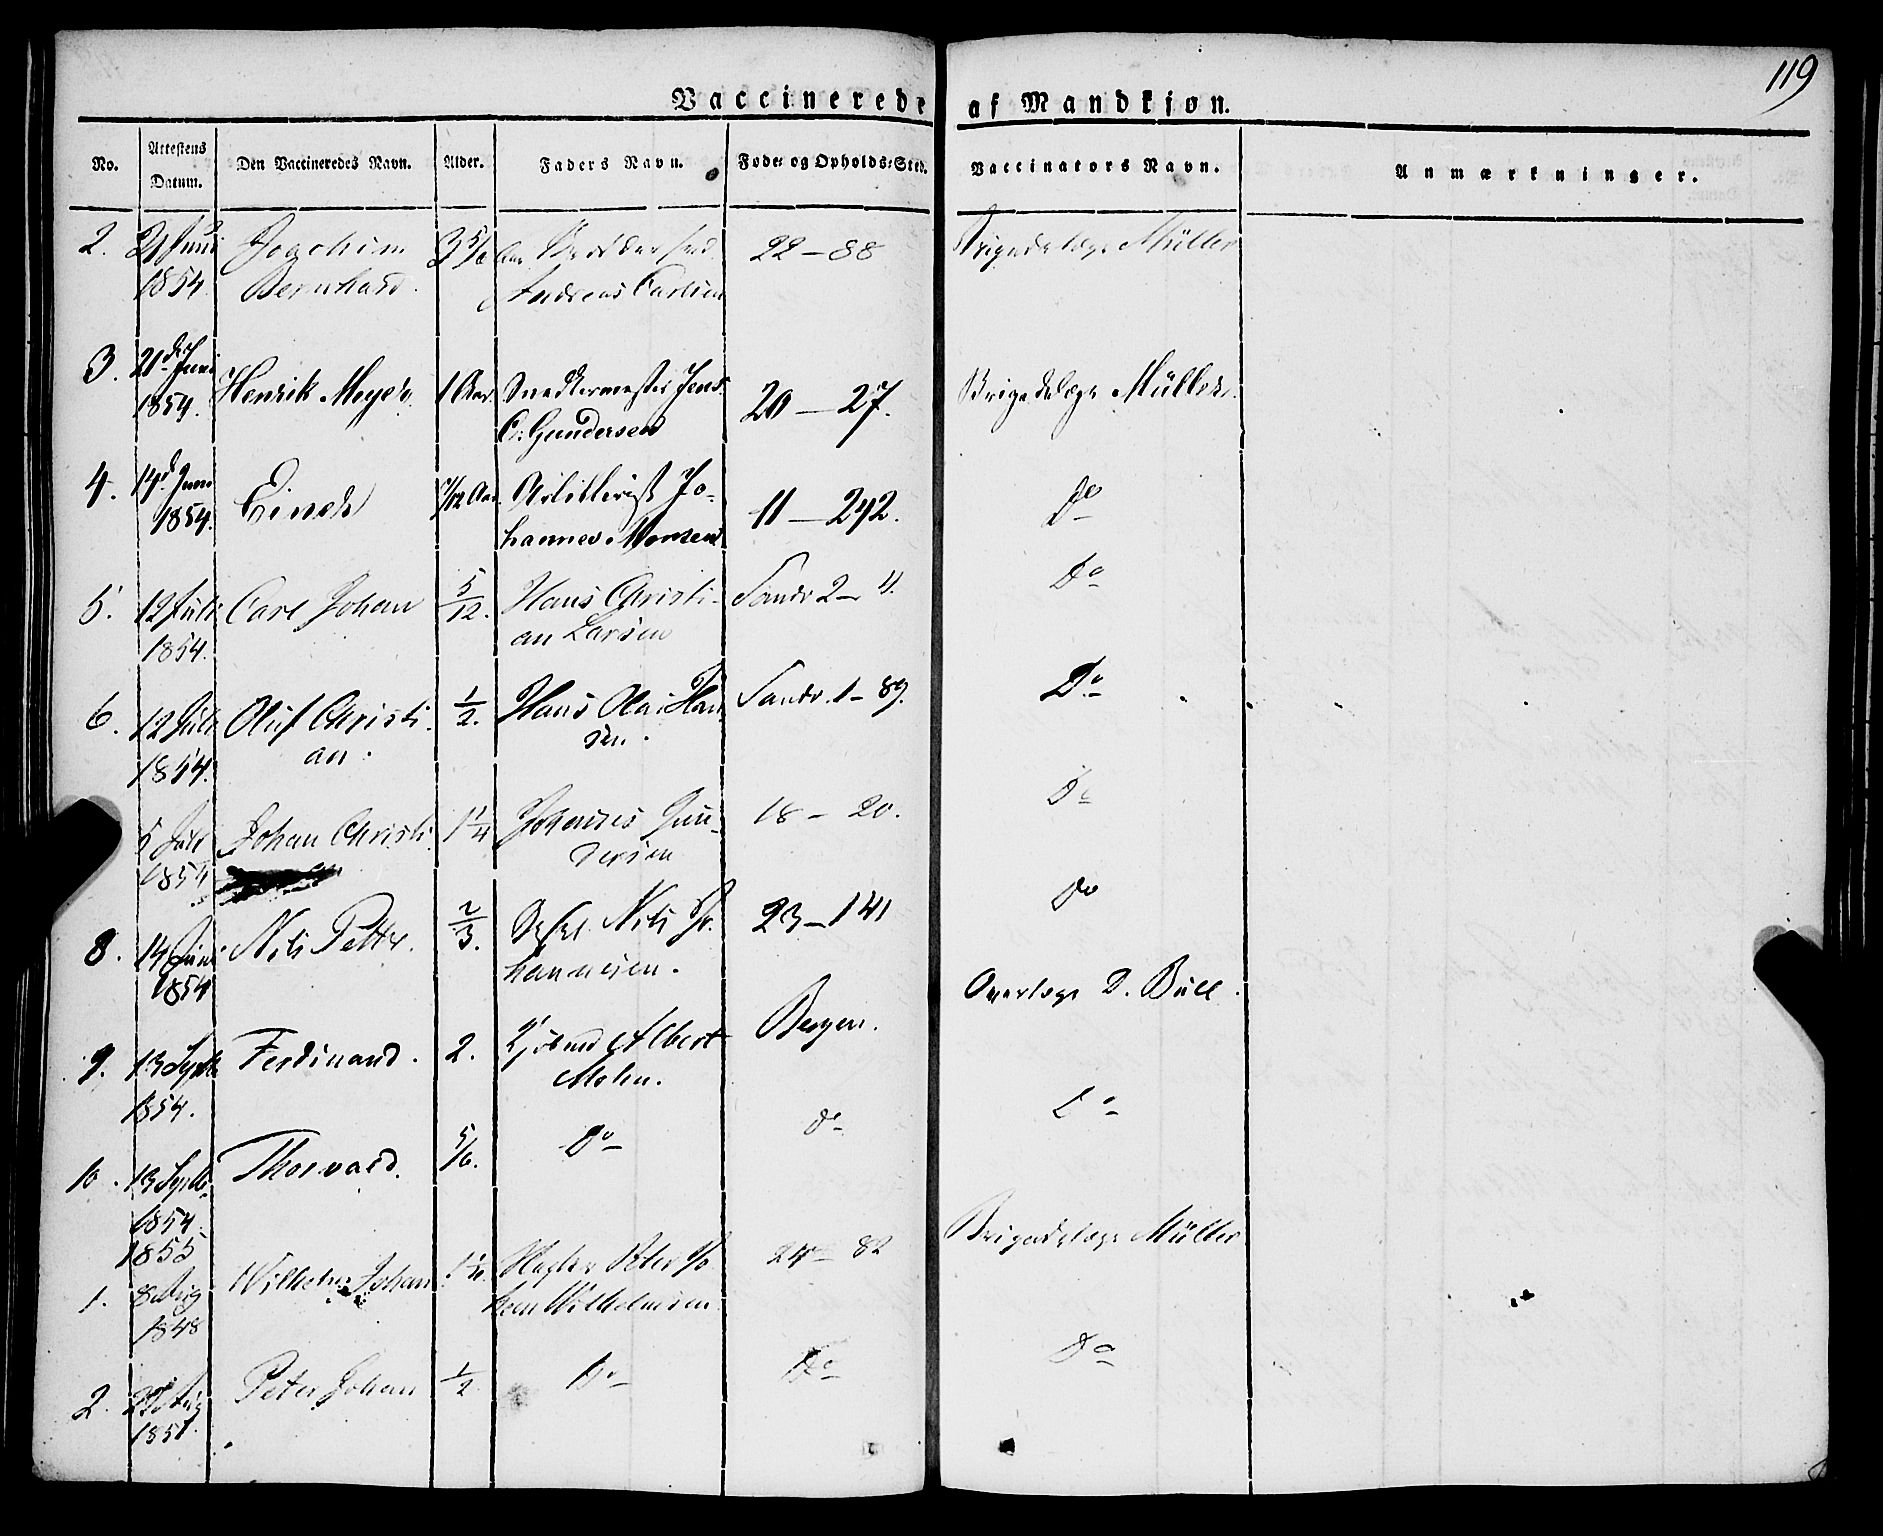 119
Vaccinerede af Mandkjøn.
No. Attestens Datum. Den Vaccineredes Navn. Alder. Faders Navn. Føde- og Opholds-Sted. Vaccinators Navn. Anmærkninger.
2. 21 Juni Joachim 3 5/6 22 – 88 Brigadelæge Müller
1854. Bernhard. Andreas Carlsen
3. 21de Juni Henrik Meyer 1 Aar Snedkermester Jens 20 – 27. Brigadelæge Müller.
1854. C. Gundersen
4. 14d Juni Einer 7/12 Aar Artillerist Jo- 11 – 242. Do
1854. hannes Monsen
5. 12 Juli Carl Johan 5/12. Hans Christi- Sandv. 2 – 4. Do
1854. an Larsen
6. 12 Juli Oluf Christi- 1/2. Hans Olai Han Sandv. 1 – 89. Do
1854. an. sen.
5 Juli Johan Christi 1 1/4 Johannes Gun- 18 – 20. Do
1854 dersen
8. 14 Juni Nils Petter. 2/3. Nils Jo- 23 – 141 Do
1854 hannesen.
9. 13 Septb Ferdinand. 2. Kjøbmd Albert Bergen. Overlæge D. Bull.
1854. Mohn.
10. 13 Septb. Thorvald. 5/6. Do do Do
1854.
1855
1. 8 Aug Wilhelm Johan 1 1/4 Peter Jo 24 – 82 Brigadelæge Müller
1848 han Wilhelmsen
2. Aug Peter Johan 1/2 Do Do Do
1851.